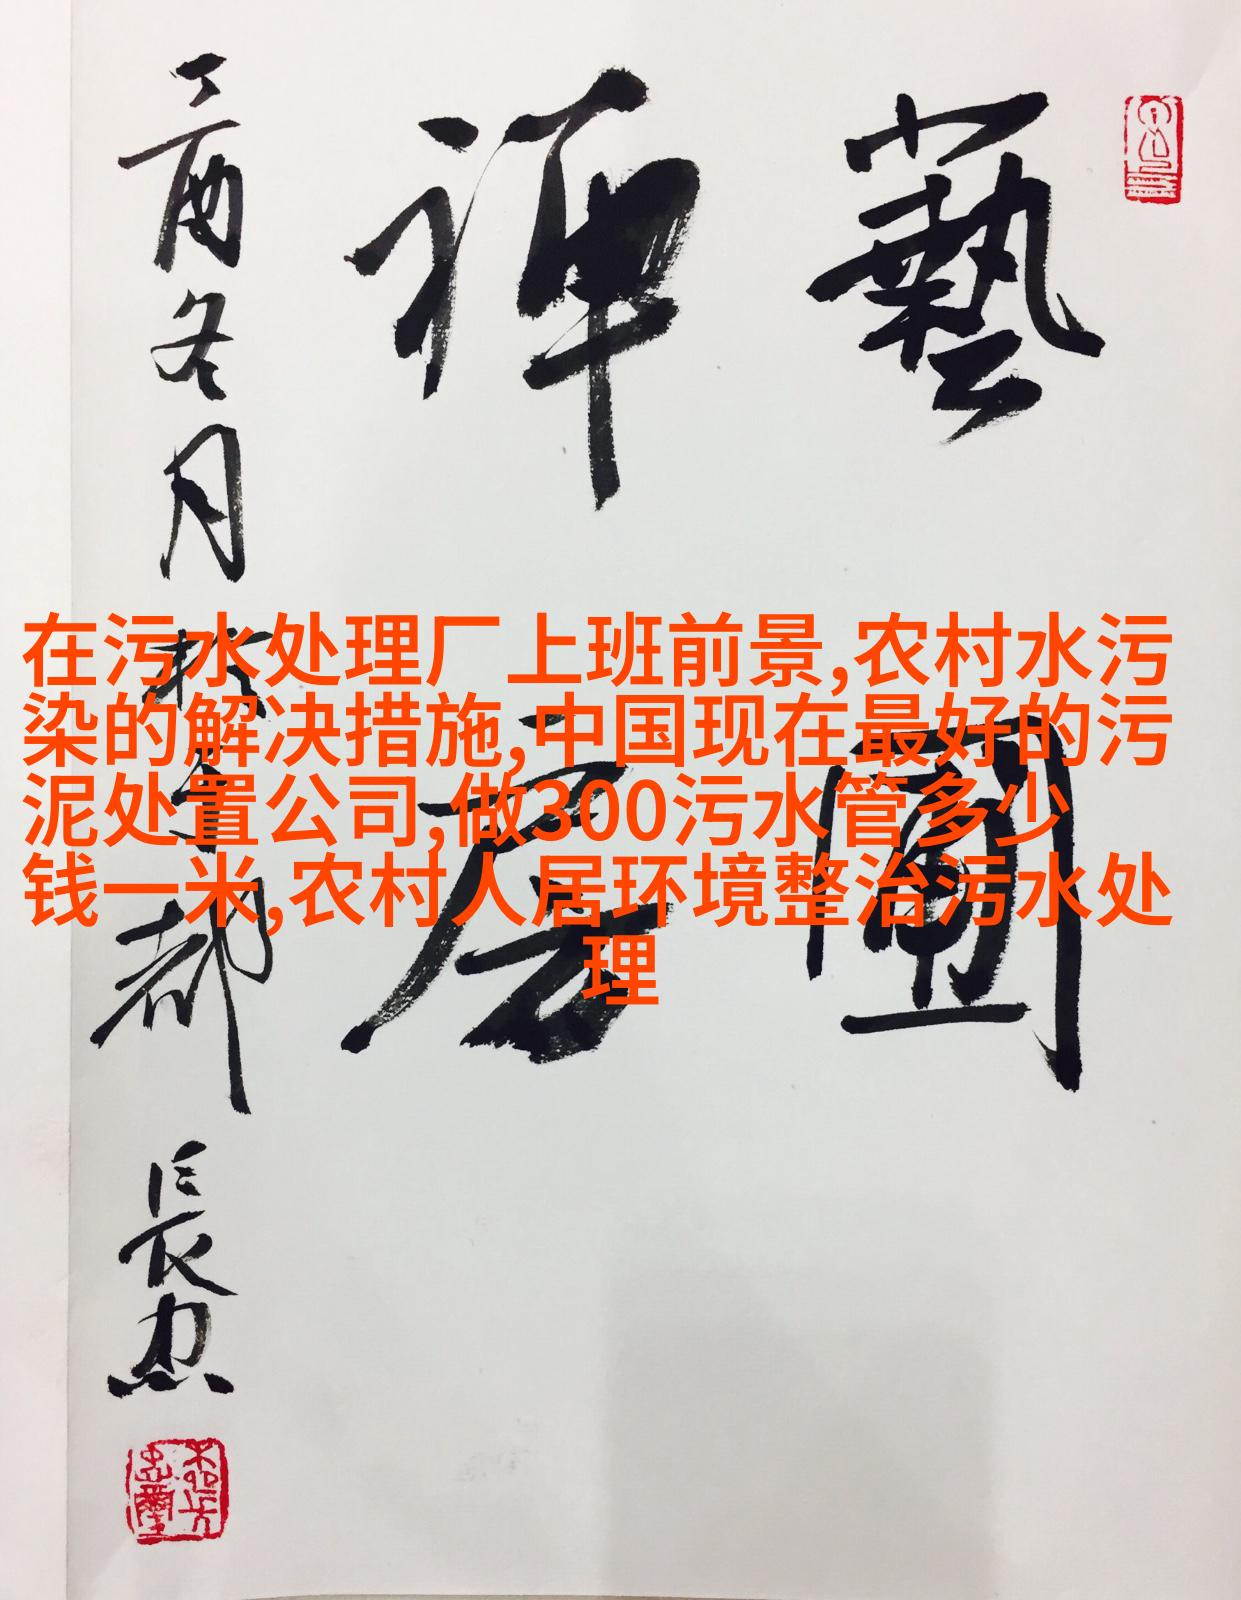 藝
禪
丁酉冬月於都長忠
在污水处理厂上班前景,农村水污
染的解决措施,中国现在最好的污
泥处置公司,做300污水管多少
钱一米,农村人居环境整治污水处
理